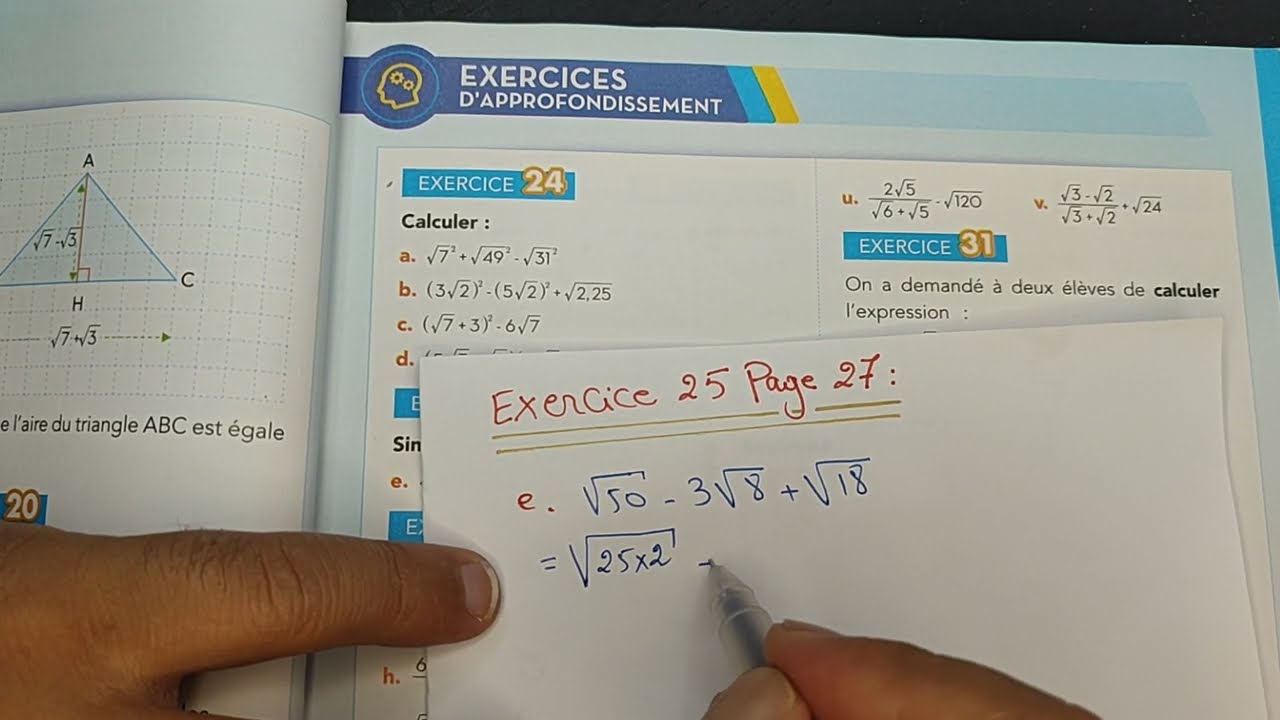 A
√7-√3
C
H
√7+√3
e l'aire du triangle ABC est égale
20
EXERCICES
D'APPROFONDISSEMENT
EXERCICE 24
Calculer :
a. √7² + √49² - √31²
b. (3√2)² - (5√2)² + √2,25
c. (√7 + 3)² - 6√7
d.
E
Sin
e.
E
h. 6
u. 2√5/(√6 + √5) - √120
v. (√3 - √2)/(√3 + √2) + √24
EXERCICE 31
On a demandé à deux élèves de calculer
l'expression :
Exercice 25 Page 27 :
e. √50 - 3√8 + √18
= √25×2 -